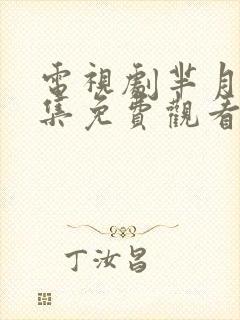 電視劇羋月
集免費觀看
丁汝昌